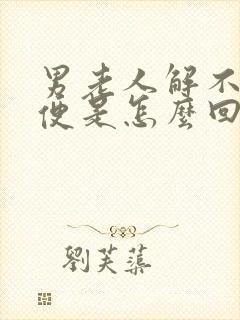 男老人解不
便是怎麼回
劉芙蕖